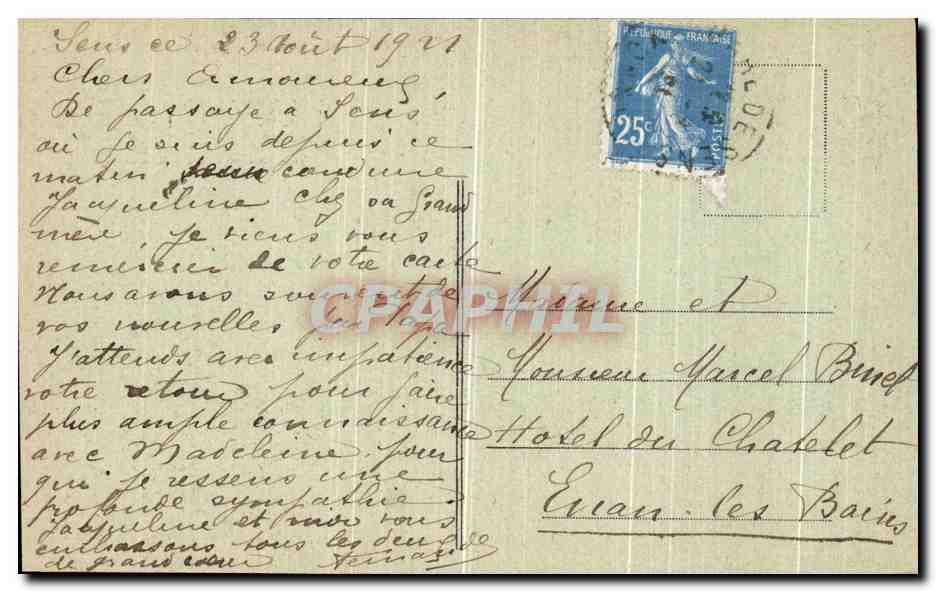 Sens ce 23 Août 1921
Chers Amoureux
De passage a Sens,
où je suis depuis ce
matin conduire
Jaqueline chez sa Grand
mère, je viens vous
remercier de votre carte
Nous avons souvent de
vos nouvelles par Papa
J'attends avec impatience
votre retour pour faire
plus ample connaissance
avec Madeleine pour
qui je ressens une
profonde sympathie.
Jaqueline et moi vous
embrassons tous les deux de
de grand cœur Fernand
REPUBLIQUE FRANÇAISE
25c
POSTES
CPAPHIL
Madame et
Monsieur Marcel Binet
Hotel du Chatelet
Evian-les Bains